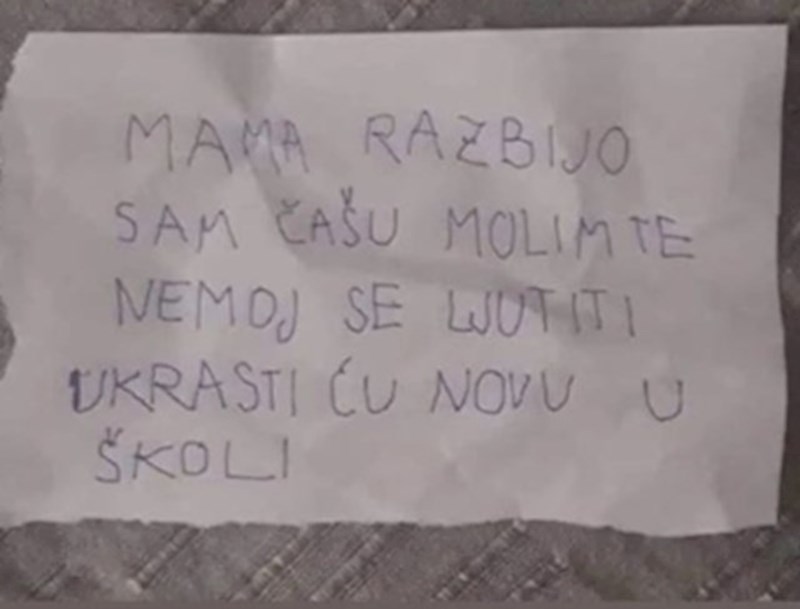 MAMA RAZBIJO
SAM ČAŠU MOLIM TE
NEMOJ SE LJUTITI
UKRASTI ĆU NOVU U
ŠKOLI